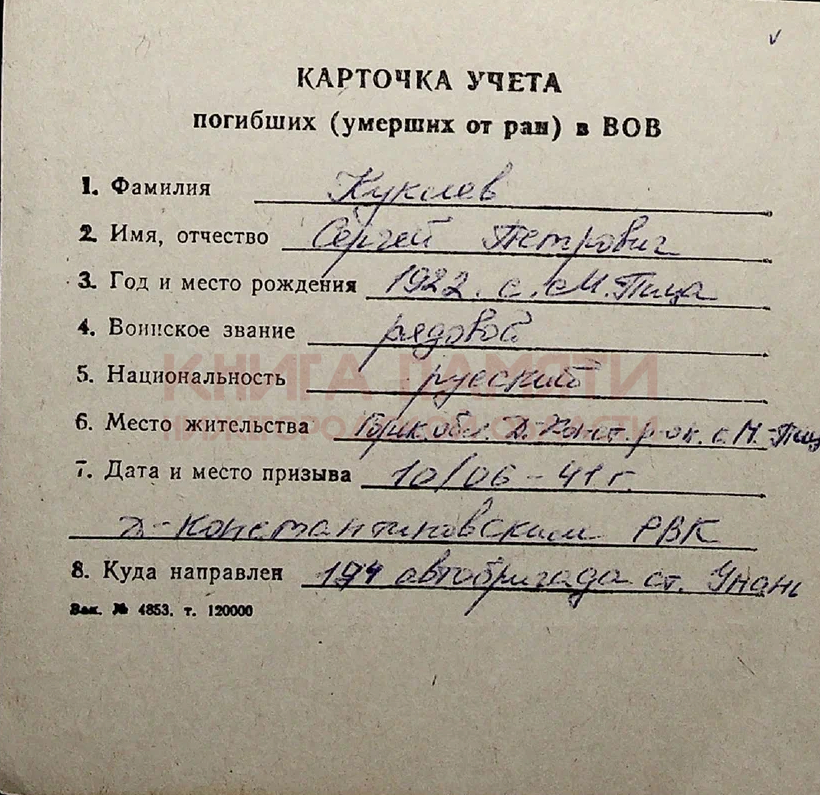 КАРТОЧКА УЧЕТА
погибших (умерших от ран) в ВОВ
1. Фамилия Куклев
2. Имя, отчество Сергей Петрович
3. Год и место рождения 1922. с. М. Пица
4. Воинское звание рядовой
5. Национальность русский
КНИГА ПАМЯТИ
НИЖЕГОРОДСКОЙ ОБЛАСТИ
6. Место жительства Горьк. обл. Д-Конст. р-он. с. М.-Пица
7. Дата и место призыва 10/06-41 г.
Д-Константиновским РВК
8. Куда направлен автобригада ст. Унань
Зак. № 4853. т. 120000